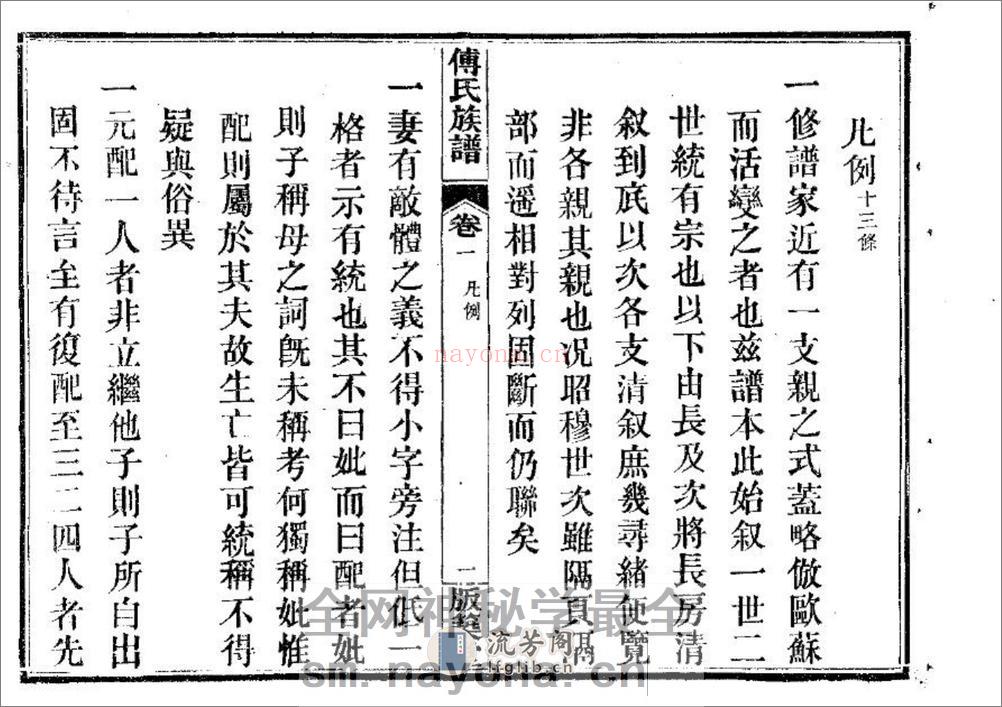 凡例十三條
一修譜家近有一支親之式蓋略倣歐蘇
而活變之者也茲譜本此始叙一世二
世統有宗也以下由長及次將長房清
叙到底以次各支清叙庶幾尋緒便覽
非各親其親也况昭穆世次雖隔頁隔
部而遥相對列固斷而仍聯矣
傅氏族譜
卷一
凡例
一
版築
一妻有敵體之義不得小字旁注但低一
格者示有統也其不曰妣而曰配者妣
則子稱母之詞旣未稱考何獨稱妣惟
配則屬於其夫故生亡皆可統稱不得
疑與俗異
一元配一人者非立繼他子則子所自出
固不待言至有復配至三二四人者先
nayona.cn
全网神秘学最全
流芳阁
lfglib.cn
sm.nayona.cn